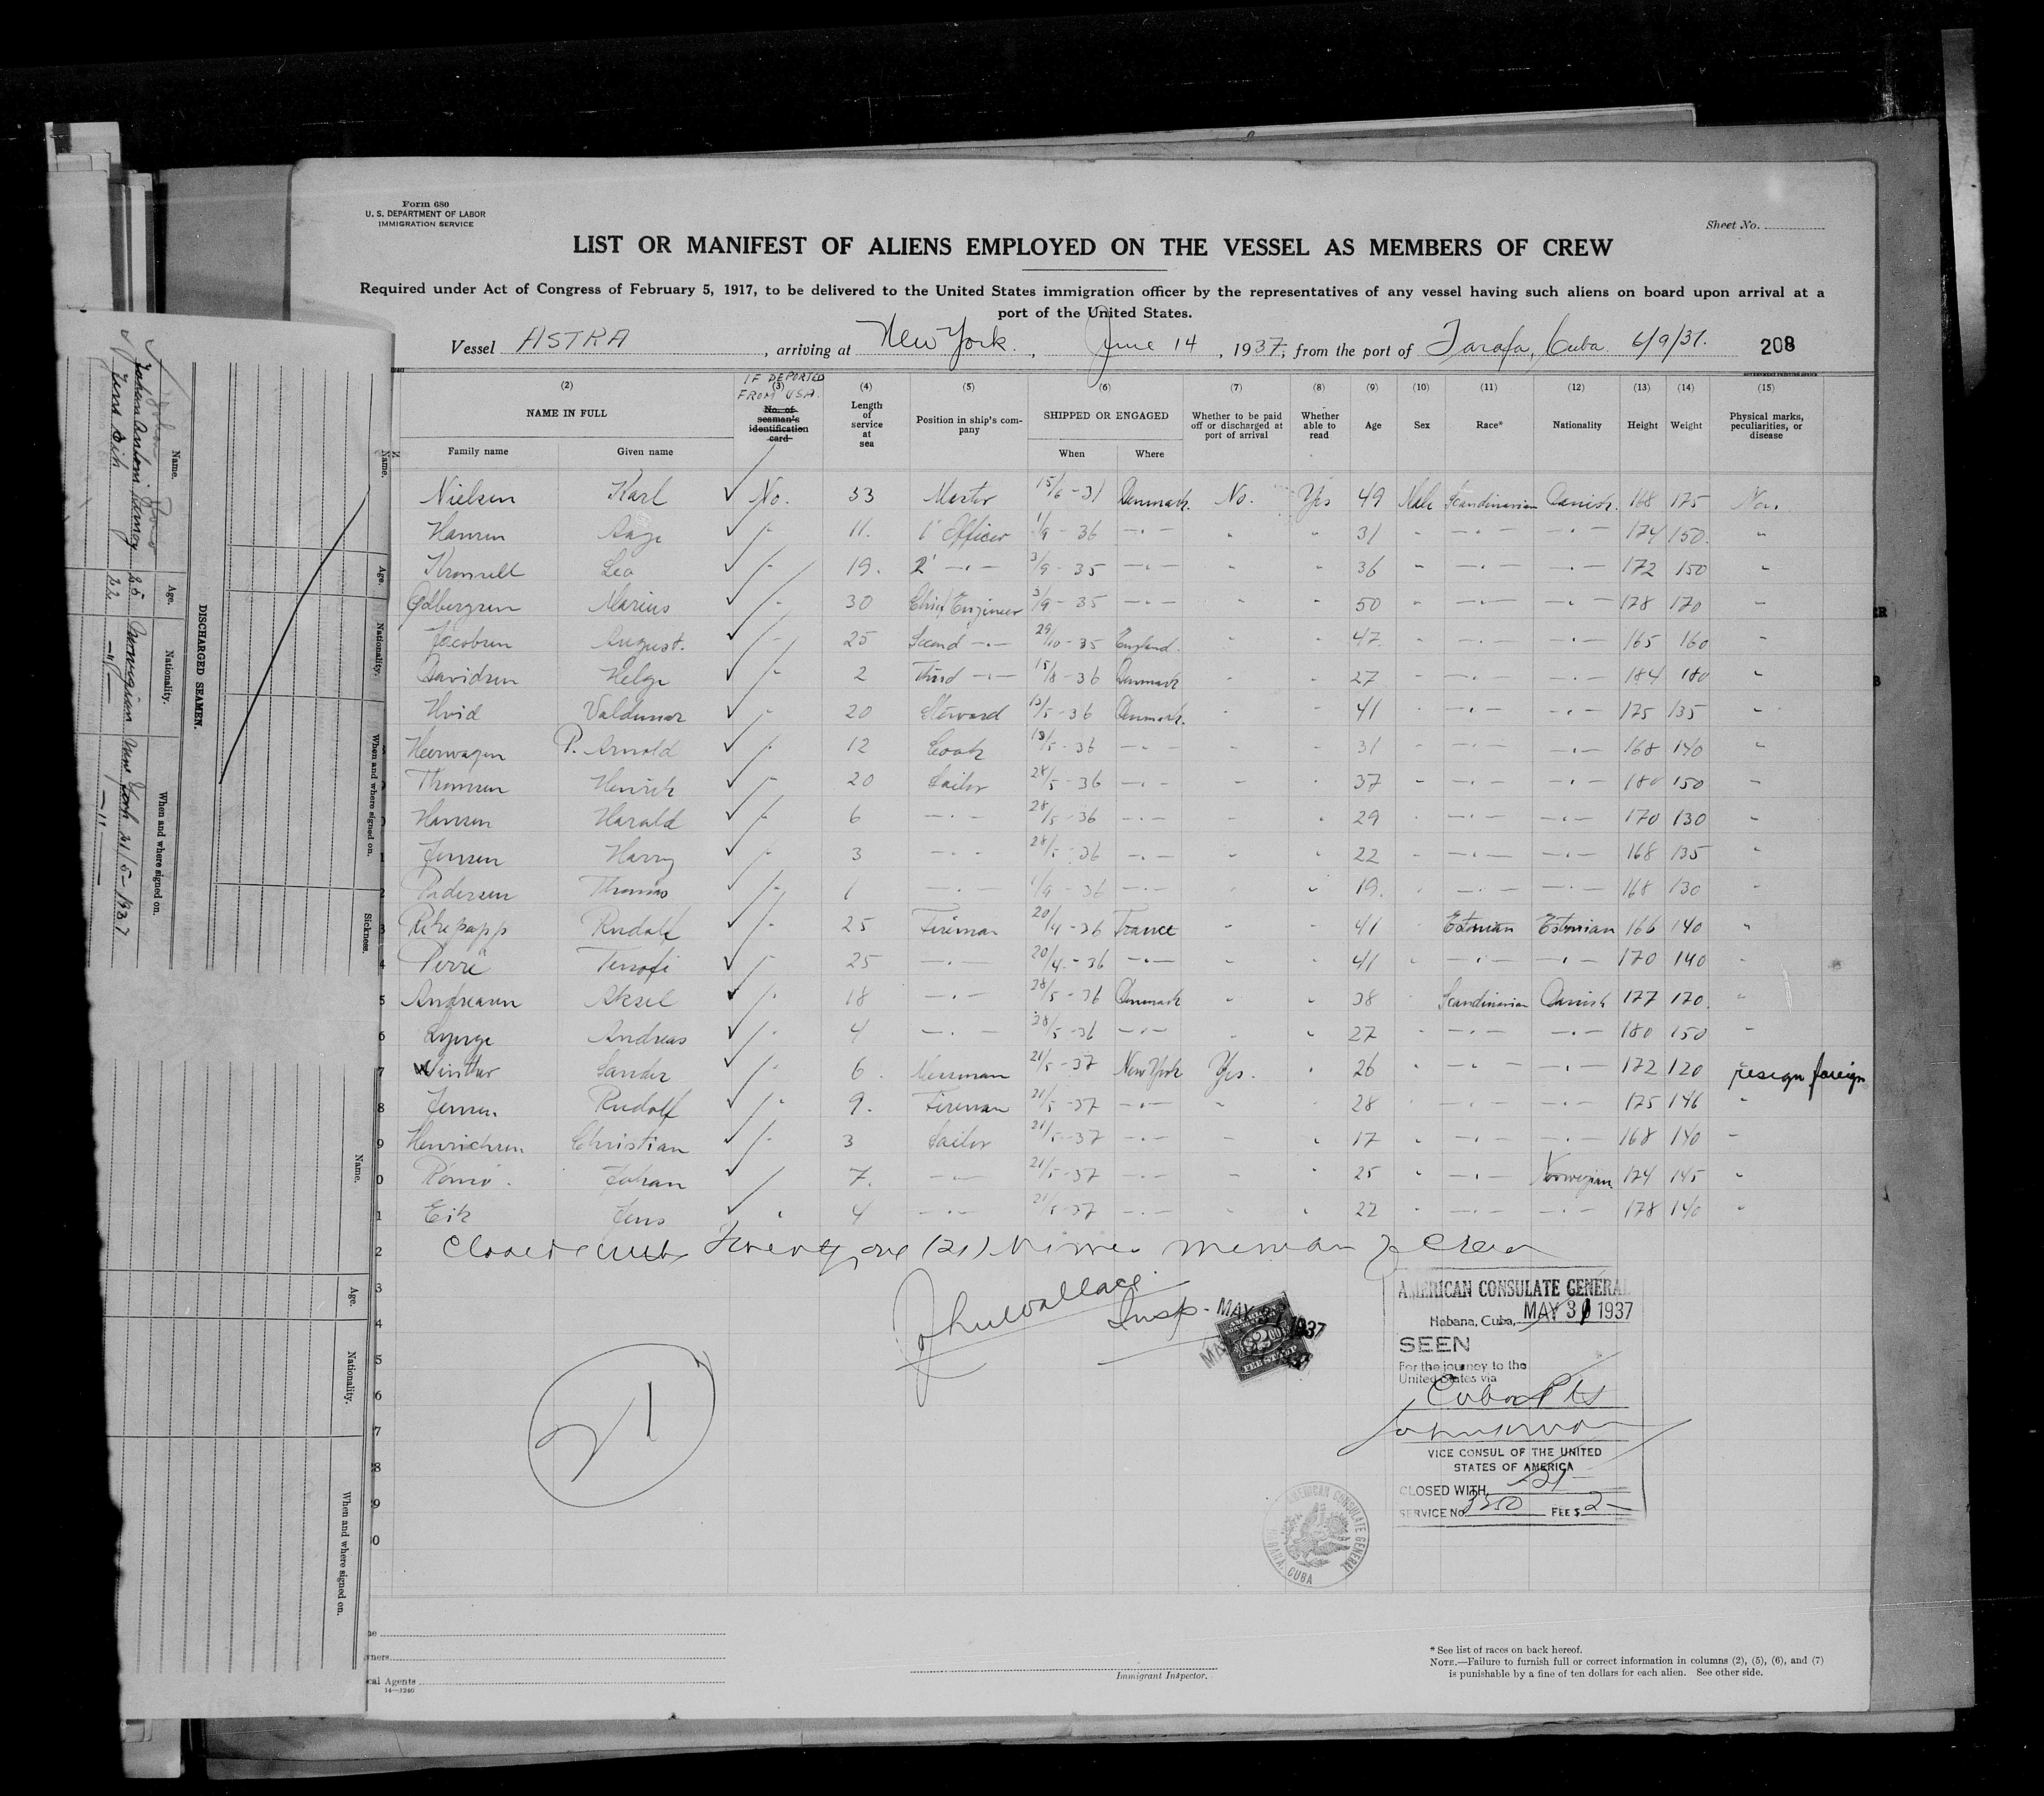 Form 680
U. S. DEPARTMENT OF LABOR
IMMIGRATION SERVICE
Sheet No.
LIST OR MANIFEST OF ALIENS EMPLOYED ON THE VESSEL AS MEMBERS OF CREW
Required under Act of Congress of February 5, 1917, to be delivered to the United States immigration officer by the representatives of any vessel having such aliens on board upon arrival at a
port of the United States.
Vessel ASTRA, arriving at New York, June 14, 1937, from the port of Tarafa, Cuba. 6/9/37. 208
(2) (3) (4) (5) (6) (7) (8) (9) (10) (11) (12) (13) (14) (15)
IF DEPORTED FROM USA.
NAME IN FULL
No. of seaman's identification card
Length of service at sea
Position in ship's company
SHIPPED OR ENGAGED
Whether to be paid off or discharged at port of arrival
Whether able to read
Age
Sex
Race*
Nationality
Height
Weight
Physical marks, peculiarities, or disease
Family name Given name When Where
Nielsen Karl ✓ No. 33 Master 15/6 - 31 Denmark. No. Yes 49 Male Scandinavian Danish. 168 175 Non.
Hansen Aage ✓ 11. 1' Officer 1/9 - 36 31 174 150.
Leo ✓ 19. 2' 3/9 - 35 36 172 150
Marius ✓ 30 Chief Engineer 3/9 - 35 50 178 170
Jacobsen August. ✓ 25 Second 29/10 - 35 England. 47. 165 160
Davidsen Helge ✓ 2 Third 15/8 - 36 Denmark 27 184 180
Hvid Valdemar ✓ 20 Steward 13/5 - 36 Denmark. 41 175 135
Heerwagen P. Arnold ✓ 12 Cook 13/5 - 36 31 168 140
Thomsen Henrik ✓ 20 Sailor 28/5 - 36 37 180 150
Hansen Harald ✓ 6 28/5 - 36 29 170 130
Jensen Harry ✓ 3 28/5 - 36 22 168 135
Pedersen Thomas ✓ 1 1/9 - 36 19. 168 130
3 Rudolf ✓ 25 Fireman 20/4 - 36 France 41 Estonian Estonian 166 140
4 ✓ 25 20/4 - 36 41 170 140
5 Andreasen Aksel ✓ 18 28/5 - 36 Denmark 38 Scandinavian Danish 177 170.
6 Lynge Andreas ✓ 4 28/5 - 36 27 180 150
7 Winther Sander ✓ 6. Messman 21/5 - 37 New York Yes. 26 172 120 resign foreign
8 Jensen. Rudolf ✓ 9. Fireman 21/5 - 37 28 175 146
9 Henrichsen Christian ✓ 3 Sailor 21/5 - 37 17 168 140
0 Römö. Johan ✓ 7. 21/5 - 37 25 Norwegian 174 145
1 Eik Jens ✓ 4 21/5 - 37 22 178 140
2 Closed with Twenty one (21) names members of crew
3
4
5
6
7
8
9
0
John Wallace
Insp.
MAY 1937
$2.00
FEE STAMP
AMERICAN CONSULATE GENERAL
Habana, Cuba, MAY 31 1937
SEEN
For the journey to the
United States via
Cuban Pts
VICE CONSUL OF THE UNITED
STATES OF AMERICA
CLOSED WITH 21
SERVICE No. 3350 FEE $ 2-
AMERICAN CONSULATE GENERAL HABANA, CUBA
21
Immigrant Inspector.
cal Agents
14—1240
* See list of races on back hereof.
NOTE.—Failure to furnish full or correct information in columns (2), (5), (6), and (7)
is punishable by a fine of ten dollars for each alien. See other side.
DISCHARGED SEAMEN.
Name. Age. Nationality. When and where signed on.
Johan Anton 25 Norwegian New York 21/5-1937
Jens Eik 22
Name. Age. Nationality. When and where signed on. Sickness.
Name. Age. Nationality. When and where signed on.